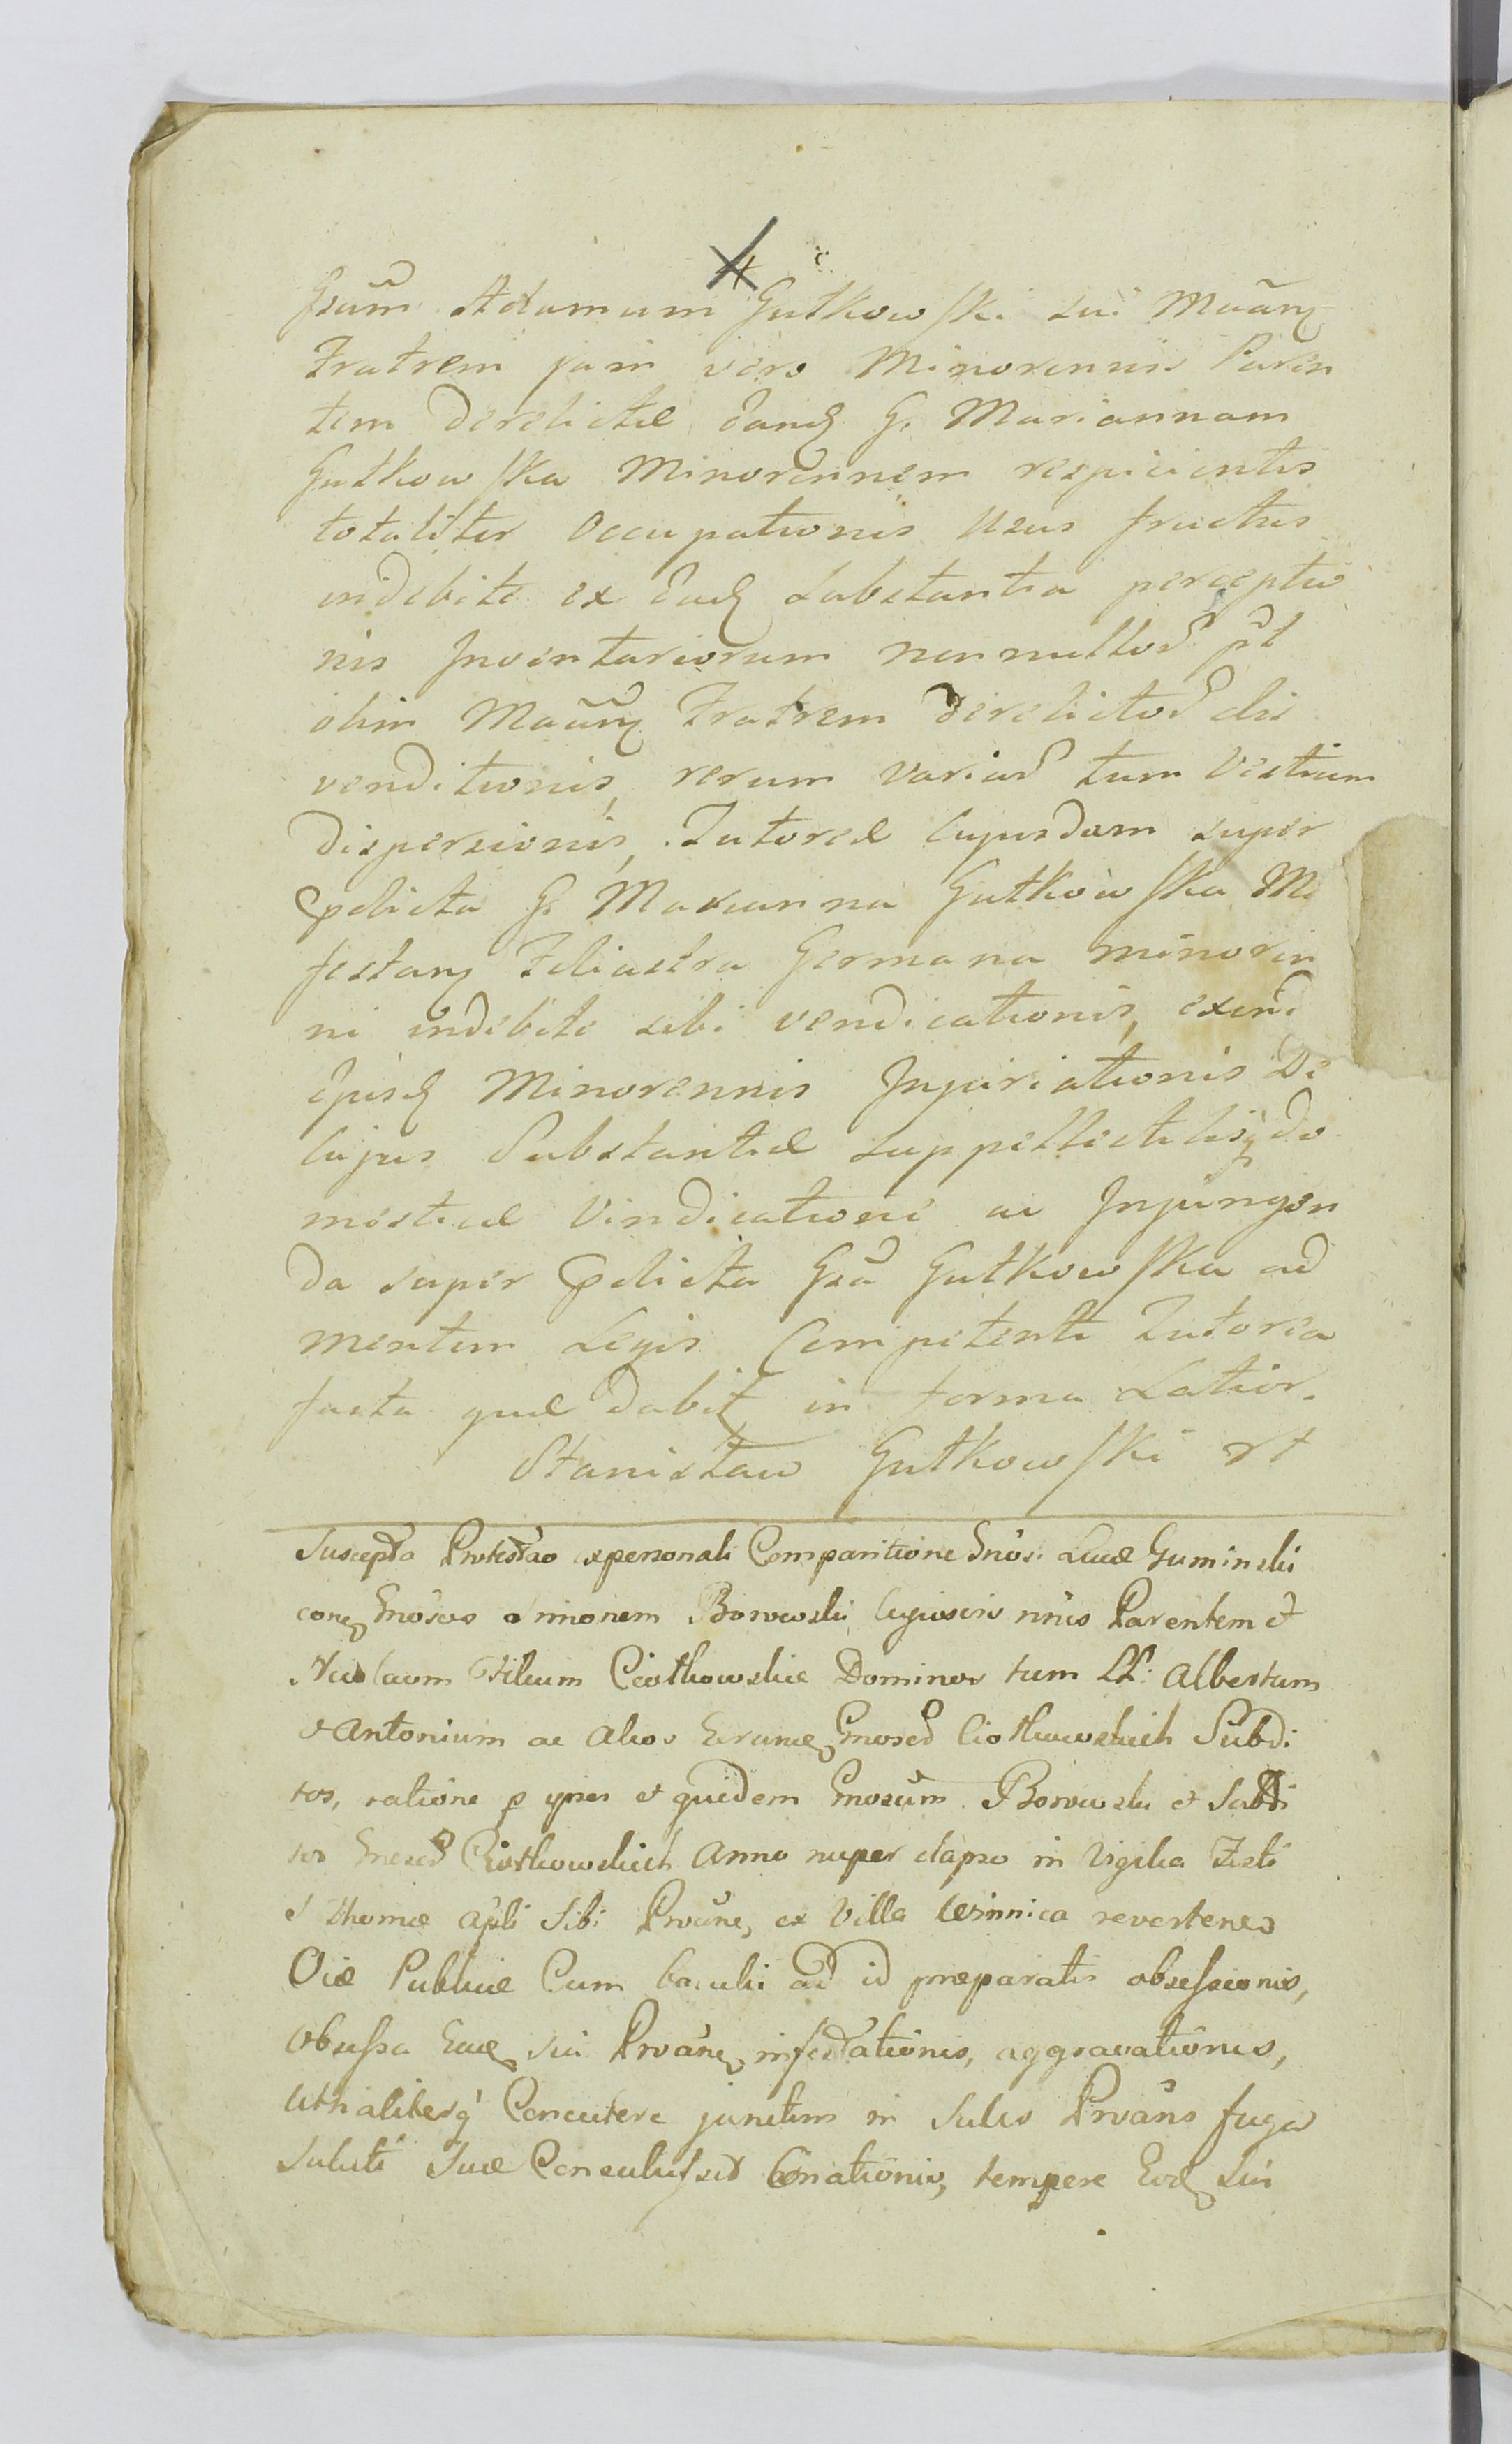 Gsum Adamum Gutkowski sui Maãnt̃
Fratrem jam vero Minorennis Paren
tem derelictæ eand̃ G. Mariannam
Gutkowska Minorennem respicientis
totaliter Occupationis Usus fructus
indebite ex ead̃ Substantia perceptio
nis Inventariorum nonnullor̃ pt
olim Maãnt̃ Fratrem derelictor̃ dis
venditionis, rerum variar̃ tum Vestium
dispersionis, Tutoreæ Cujusdam super
Pdicta G. Marianna Gutkowska M
festant̃ Filiastra Germana minoren
ni indebite sibi vendicationis, exind̃
Ejusd̃ Minorennis Injuriationis De
Cujus Substantiæ Suppellectilisq̃ do
mesticæ Vindicatione ac Injungen
da super Pdicta Gsa Gutkowska ad
mentem Legis Competenti Tutorea
facta quæ dabit̃ in forma Latior.
Stanisław Gutkowski
Suscepta Protestao expersonali Comparitione Gnosi Lucæ Guminski
con̄ Gnosos Simonem Borowski Parentem et
Nicolaum Filium Ciotkowskie Dominos tum LL: Albertum
et Antonium ac Alios Gnosor̃ Ciotkowskich Subdi
tos, ratione p ipsos et quidem Gnosum Borowski et Subdi
tos Gnosor̃ Ciotkowskich Anno nuper elapso in Vigilia Festi
S Thomæ Apli Sibi Provãne, ex Villa Winnica revertenes
Viæ Publicæ Cum baculis ad id præparatis obsessionis,
Obsessa Eaď sui Prvãne, infestationis, aggravationis,
lethaliterq̃ Concutere junctim in Sulis Prvãns fuga
Saluti Suæ Consuluisset Conationis, tempore Eod̃ Sui